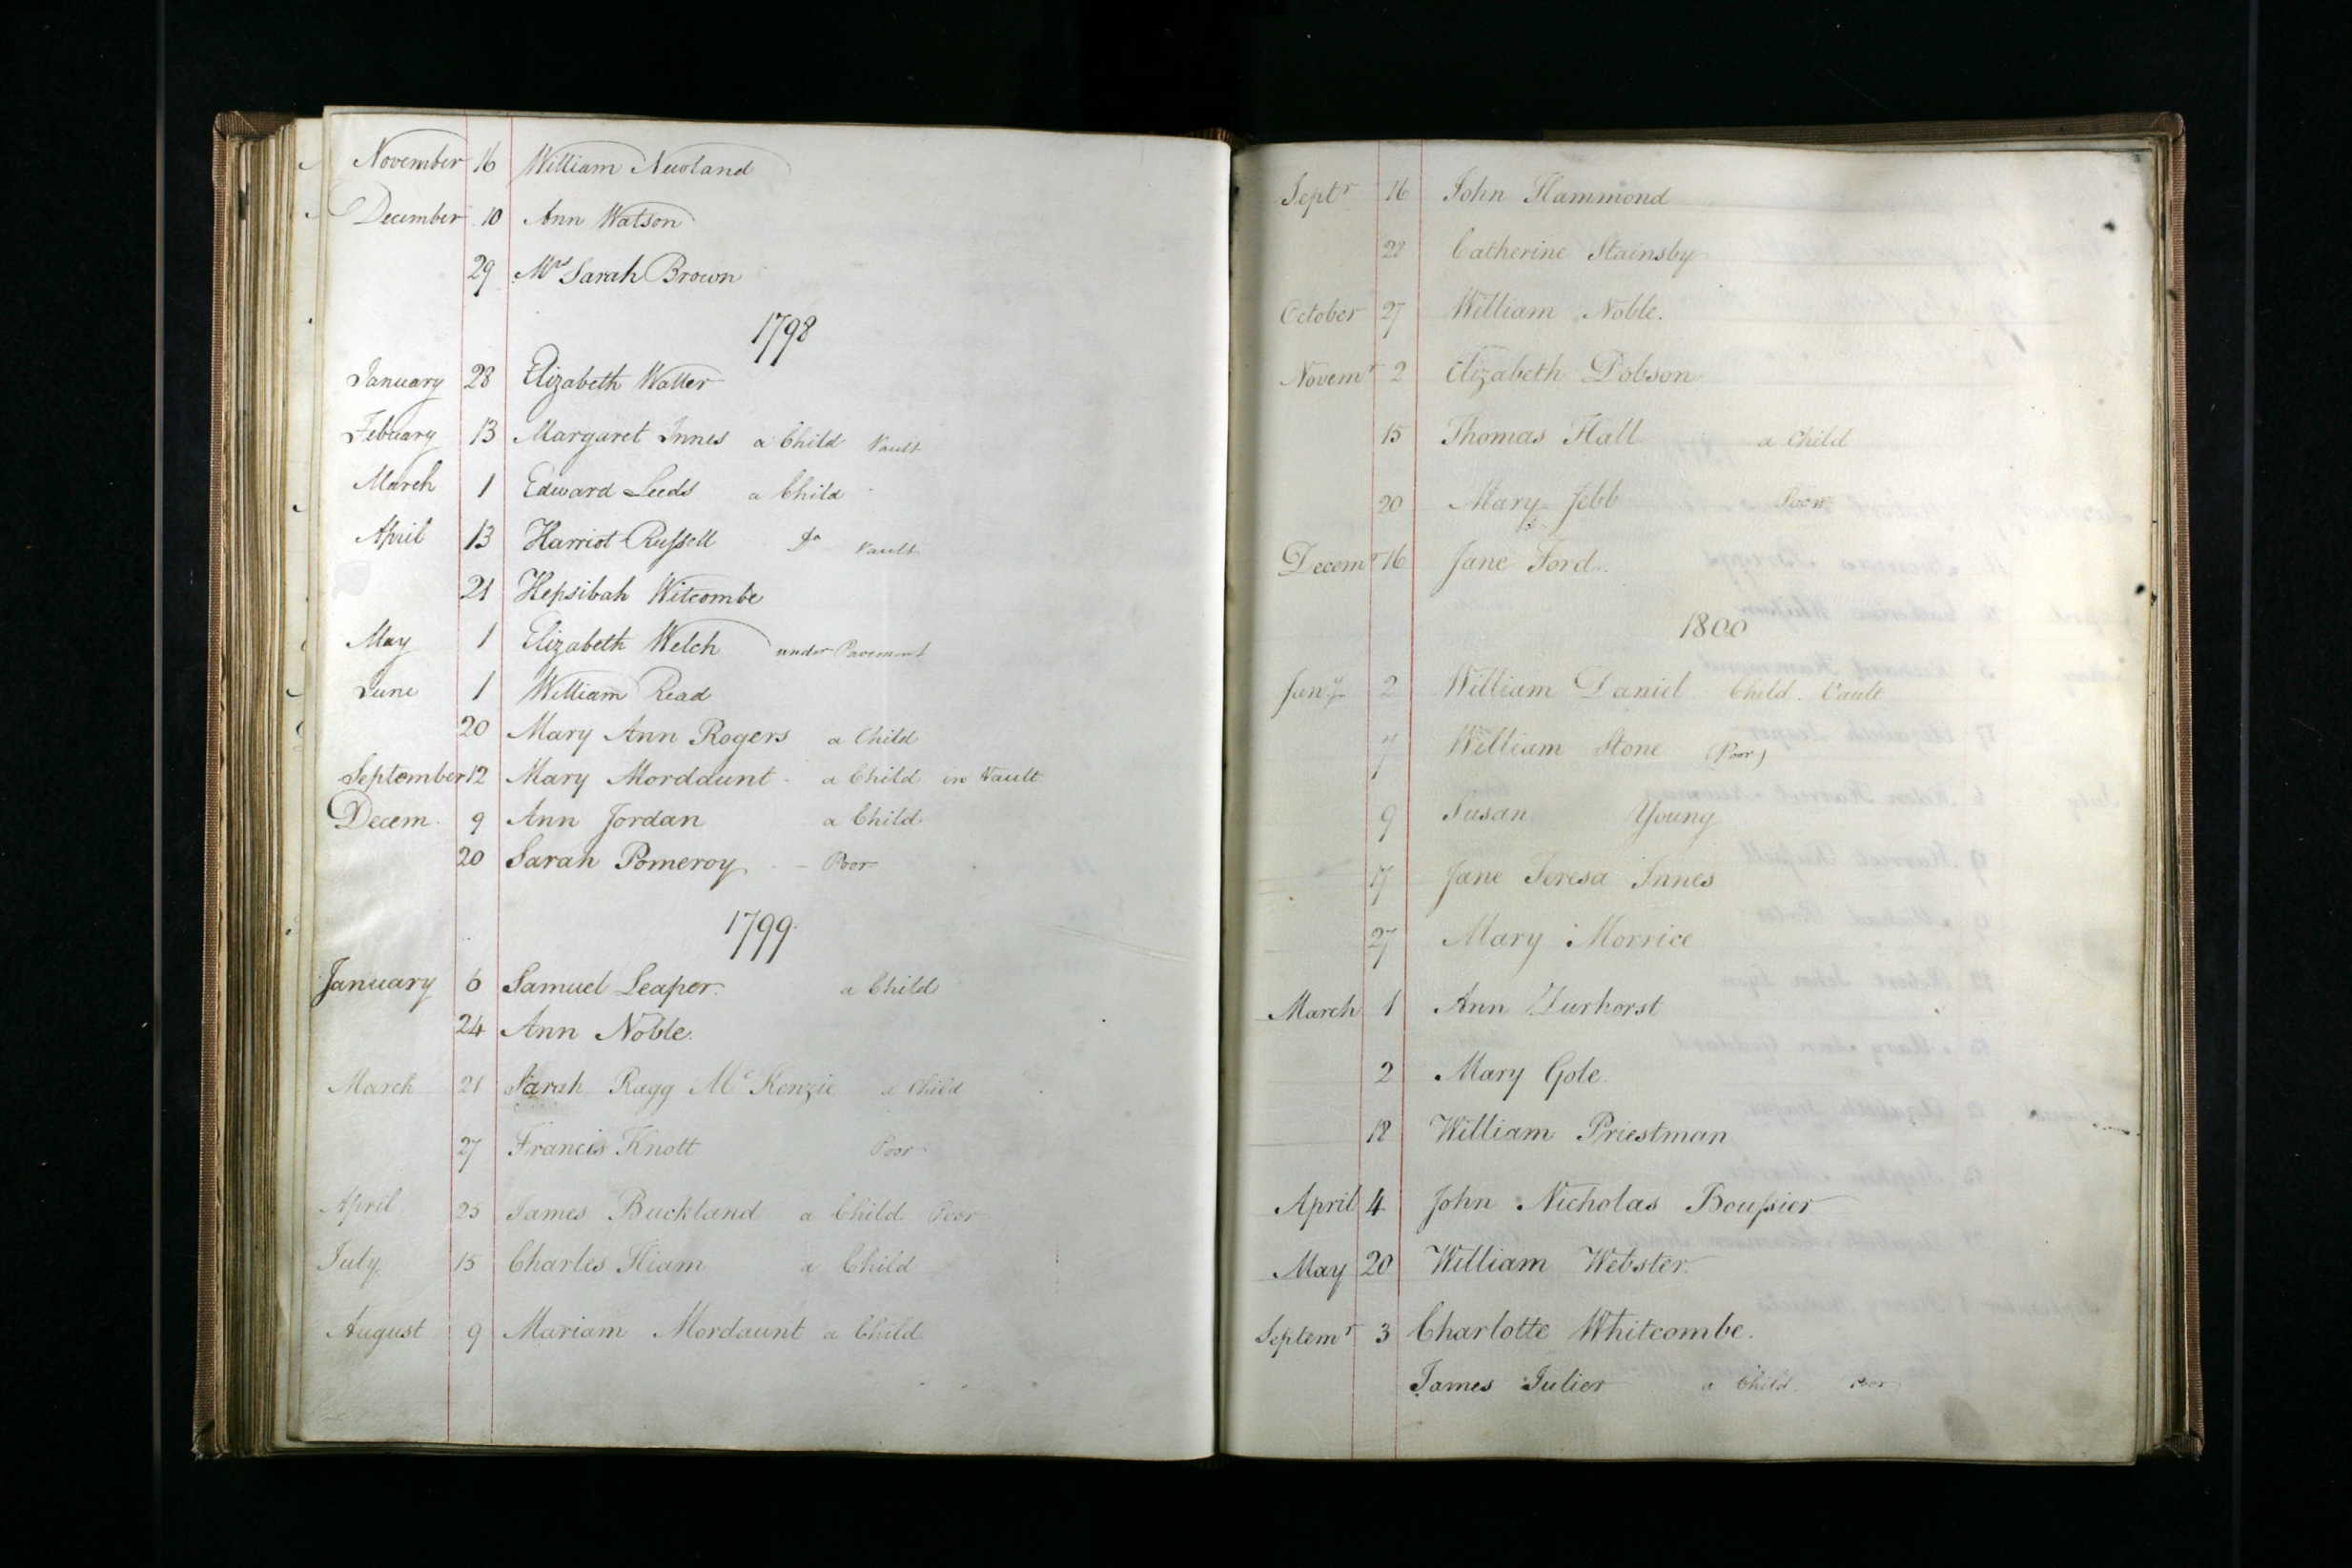 November 16 William Newland
December 10 Ann Watson
29 Mrs Sarah Brown
1798
January 28 Elizabeth Waller
Febuary 13 Margaret Innes a Child Vault
March 1 Edward Leeds a Child
April 13 Harriot Russell Do Vault
21 Hepsibah Witcombe
May 1 Elizabeth Welch under Pavement
June 1 William Read
20 Mary Ann Rogers a Child
September 12 Mary Mordaunt a Child in Vault
Decem 9 Ann Jordan a Child
20 Sarah Pomeroy Poor
1799
January 6 Samuel Leaper a Child
24 Ann Noble
March 21 Sarah Ragg McKenzie a Child
27 Francis Knott Poor
April 25 James Buckland a Child Poor
July 15 Charles Hiam a Child
August 9 Mariam Mordaunt a Child
Septr 16 John Hammond
Catherine Stainsby
October 27 William Noble.
Novemr 2 Elizabeth Dobson
15 Thomas Hall a Child
20 Mary Jebb Poor
Decemr 16 Jane Ford
1800
Jany 2 William Daniel Child Vault
7 William Stone (Poor)
9 Susan Young
17 Jane Teresa Innes
27 Mary Morrice
March 1 Ann Turhorst
2 Mary Gole
12 William Priestman
April 4 John Nicholas Boussier
May 20 William Webster.
Septemr 3 Charlotte Whitcombe.
James Julier a Child Poor